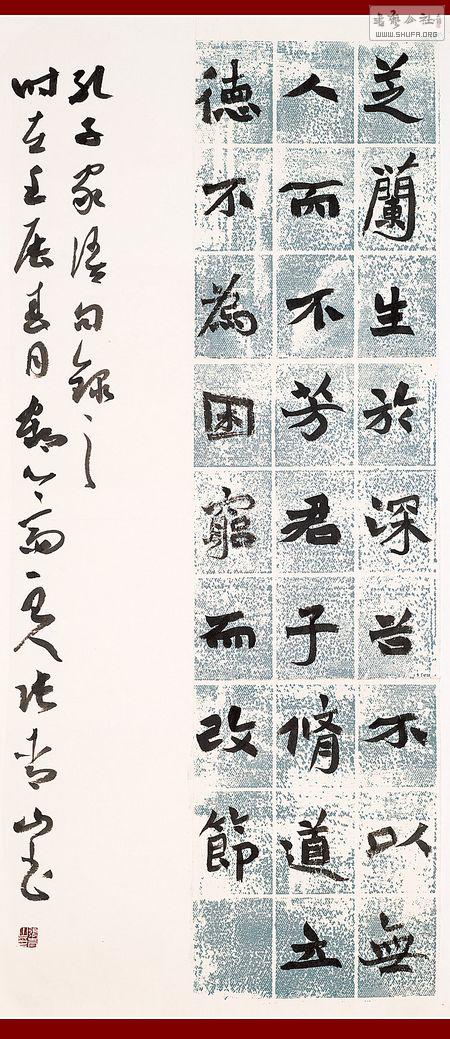 書藝公社
WWW.SHUFA.ORG
芝蘭生於深谷不以無
人而不芳君子脩道立
德不為困窮而改節
孔子家語句錄之
时在壬辰春月